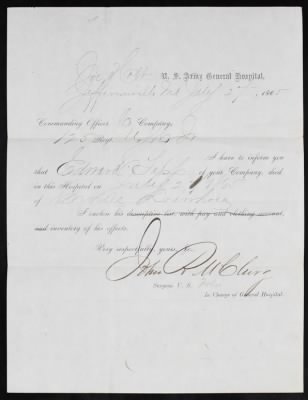 Joe Holt U. S. Army General Hospital,
Jeffersonville Ind July 27, 1865
Commanding Officer C Company,
123 Reg.
I have to inform you
that Edward of your Company, died
in this Hospital on July 2
of Diarrhoea
I enclose his descriptive list, with pay and clothing account,
and inventory of his effects.
Very respectfully, yours &c.,
John R McClurg
Surgeon U. S. Vols
In Charge of General Hospital.